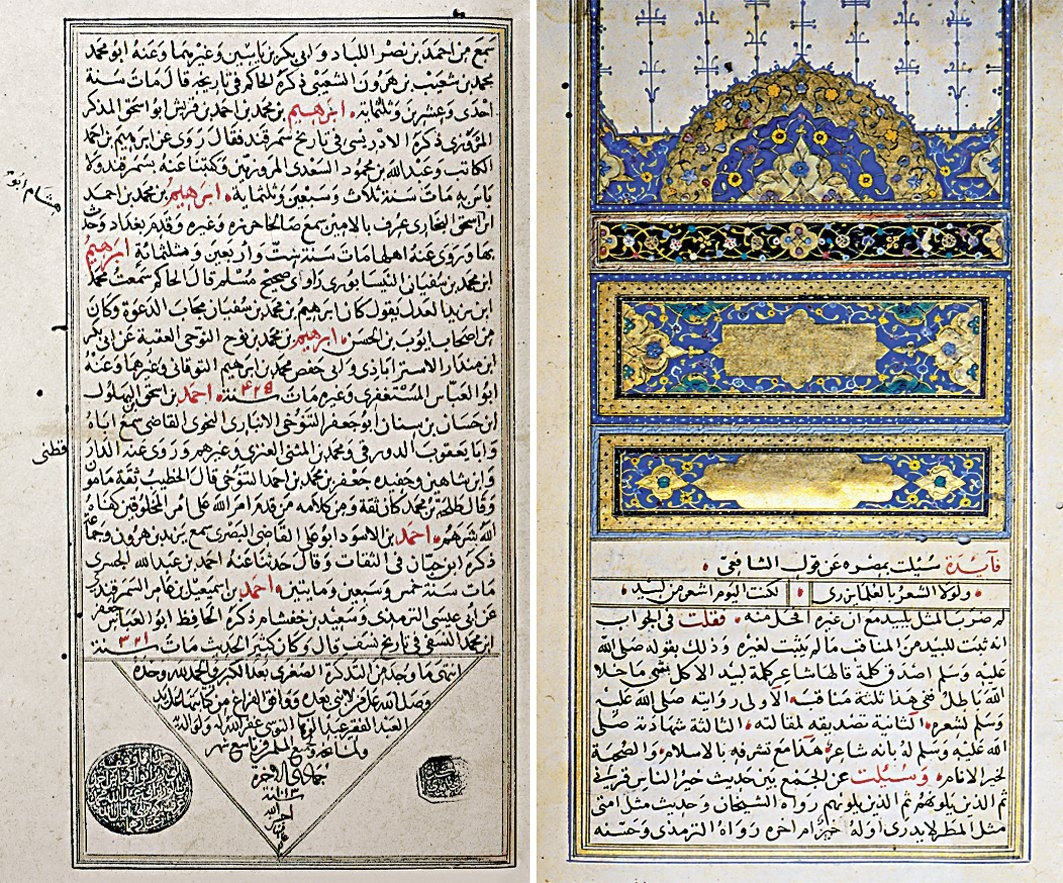 فآيدة سئلت بمصر عن قول الشافعي
ولولا الشعر بالعلما يزري لكنت اليوم اشعر من لبيد
لم ضرب المثل بلبيد مع ان غيره افحل منه فقلت في الجواب
انه ثبت للبيد من المناقب ما لم يثبت لغيره وذلك بقوله صلى الله
عليه وسلم اصدق كلمة قالها شاعر كلمة لبيد الا كل شي ما خلا
الله باطل ففي هذا ثلثة مناقب الاولى روايته صلى الله عليه
وسلم لشعره الثانية تصديقه لمقالته الثالثة شهادته صلى
الله عليه وسلم له بانه شاعر هذا مع تشرفه بالاسلام والصحبة
لخير الانام وسئلت عن الجمع بين حديث خير الناس قرني
ثم الذين يلونهم ثم الذين يلونهم رواه الشيخان وحديث مثل امتي
مثل المطر لا يدرى اوله خير ام اخره رواه الترمذي وحسنه
سمع من احمد بن نصر اللباد وابي بكر بن ياسين وغيرهما وعنه ابو محمد
محمد بن شعيب بن هرون الشعيبي ذكره الحاكم في تاريخه قال مات سنة
احدى وعشرين وثلثمايه ابرهيم بن محمد بن احمد بن قريش ابو اسحق المذكر
المروزي ذكره الادريسي في تاريخ سمرقند فقال روى عن ابرهيم بن احمد
الكاتب وعبد الله بن محمود السعدي المروزيين وكتبنا عنه بسمرقند ولا
باس به مات سنة ثلاث وسبعين وثلثمايه ابرهيم بن محمد بن احمد
ابن اسحق البخاري عرف بالامين سمع صالحا جزره وغيره وقدم بغداد وحدث
بها وروى عنه اهلها مات سنة ست وأربعين وثلثمائة ابرهيم
ابن محمد بن سفيان النيسابوري راوي صحيح مسلم قال الحاكم سمعت محمد
ابن يزيد العدل يقول كان ابرهيم بن محمد بن سفيان مجاب الدعوة وكان
من اصحاب ايوب بن الحسن ابرهيم بن محمد بن نوح النوحي الفقيه عن ابي بكر
ابن بندار الاستراباذي وابي حفص محمد بن ابرهيم النوقاني وغيرهما وعنه
ابو العباس المستغفري وغيره مات سنة ٤٢٥ احمد بن اسحق البهلول
ابن حسان بن سنان ابو جعفر التنوخي الانباري النحوي القاضي سمع اباه
وابا يعقوب الدورقي ومحمد بن المثنى العنزي وغيرهم وروى عنه الدار
قطني
وابن شاهين وحفيده جعفر بن محمد بن احمد التنوخي قال الخطيب ثقة مامون
وقال طلحة بن محمد كان ثقة ومن كلامه من قدم امر الله على امر المخلوقين كفاه
الله شرهم احمد بن الاسود ابو علي القاضي البصري سمع يزيد بن هرون وجماعة
ذكره ابن حبان في الثقات وقال حدثنا عنه احمد بن عبد الله الجسري
مات سنة خمس وسبعين ومايتين احمد بن اسمعيل بن عامر السمرقندي
عن ابي عيسى الترمذي وسعيد بن خشنام ذكره الحافظ ابو العباس جعفر
ابن محمد النسفي في تاريخ نسف قال وكان كثير الحديث مات سنة ٣٢١
انتهى ما وجد من التذكرة الصغرى بعد الكبرى والحمد لله وحده
وصلى الله على من لا نبي بعده ووافق الفراغ من كتابتها على يد
العبد الفقير عبد الوهاب غفر الله له ولوالديه